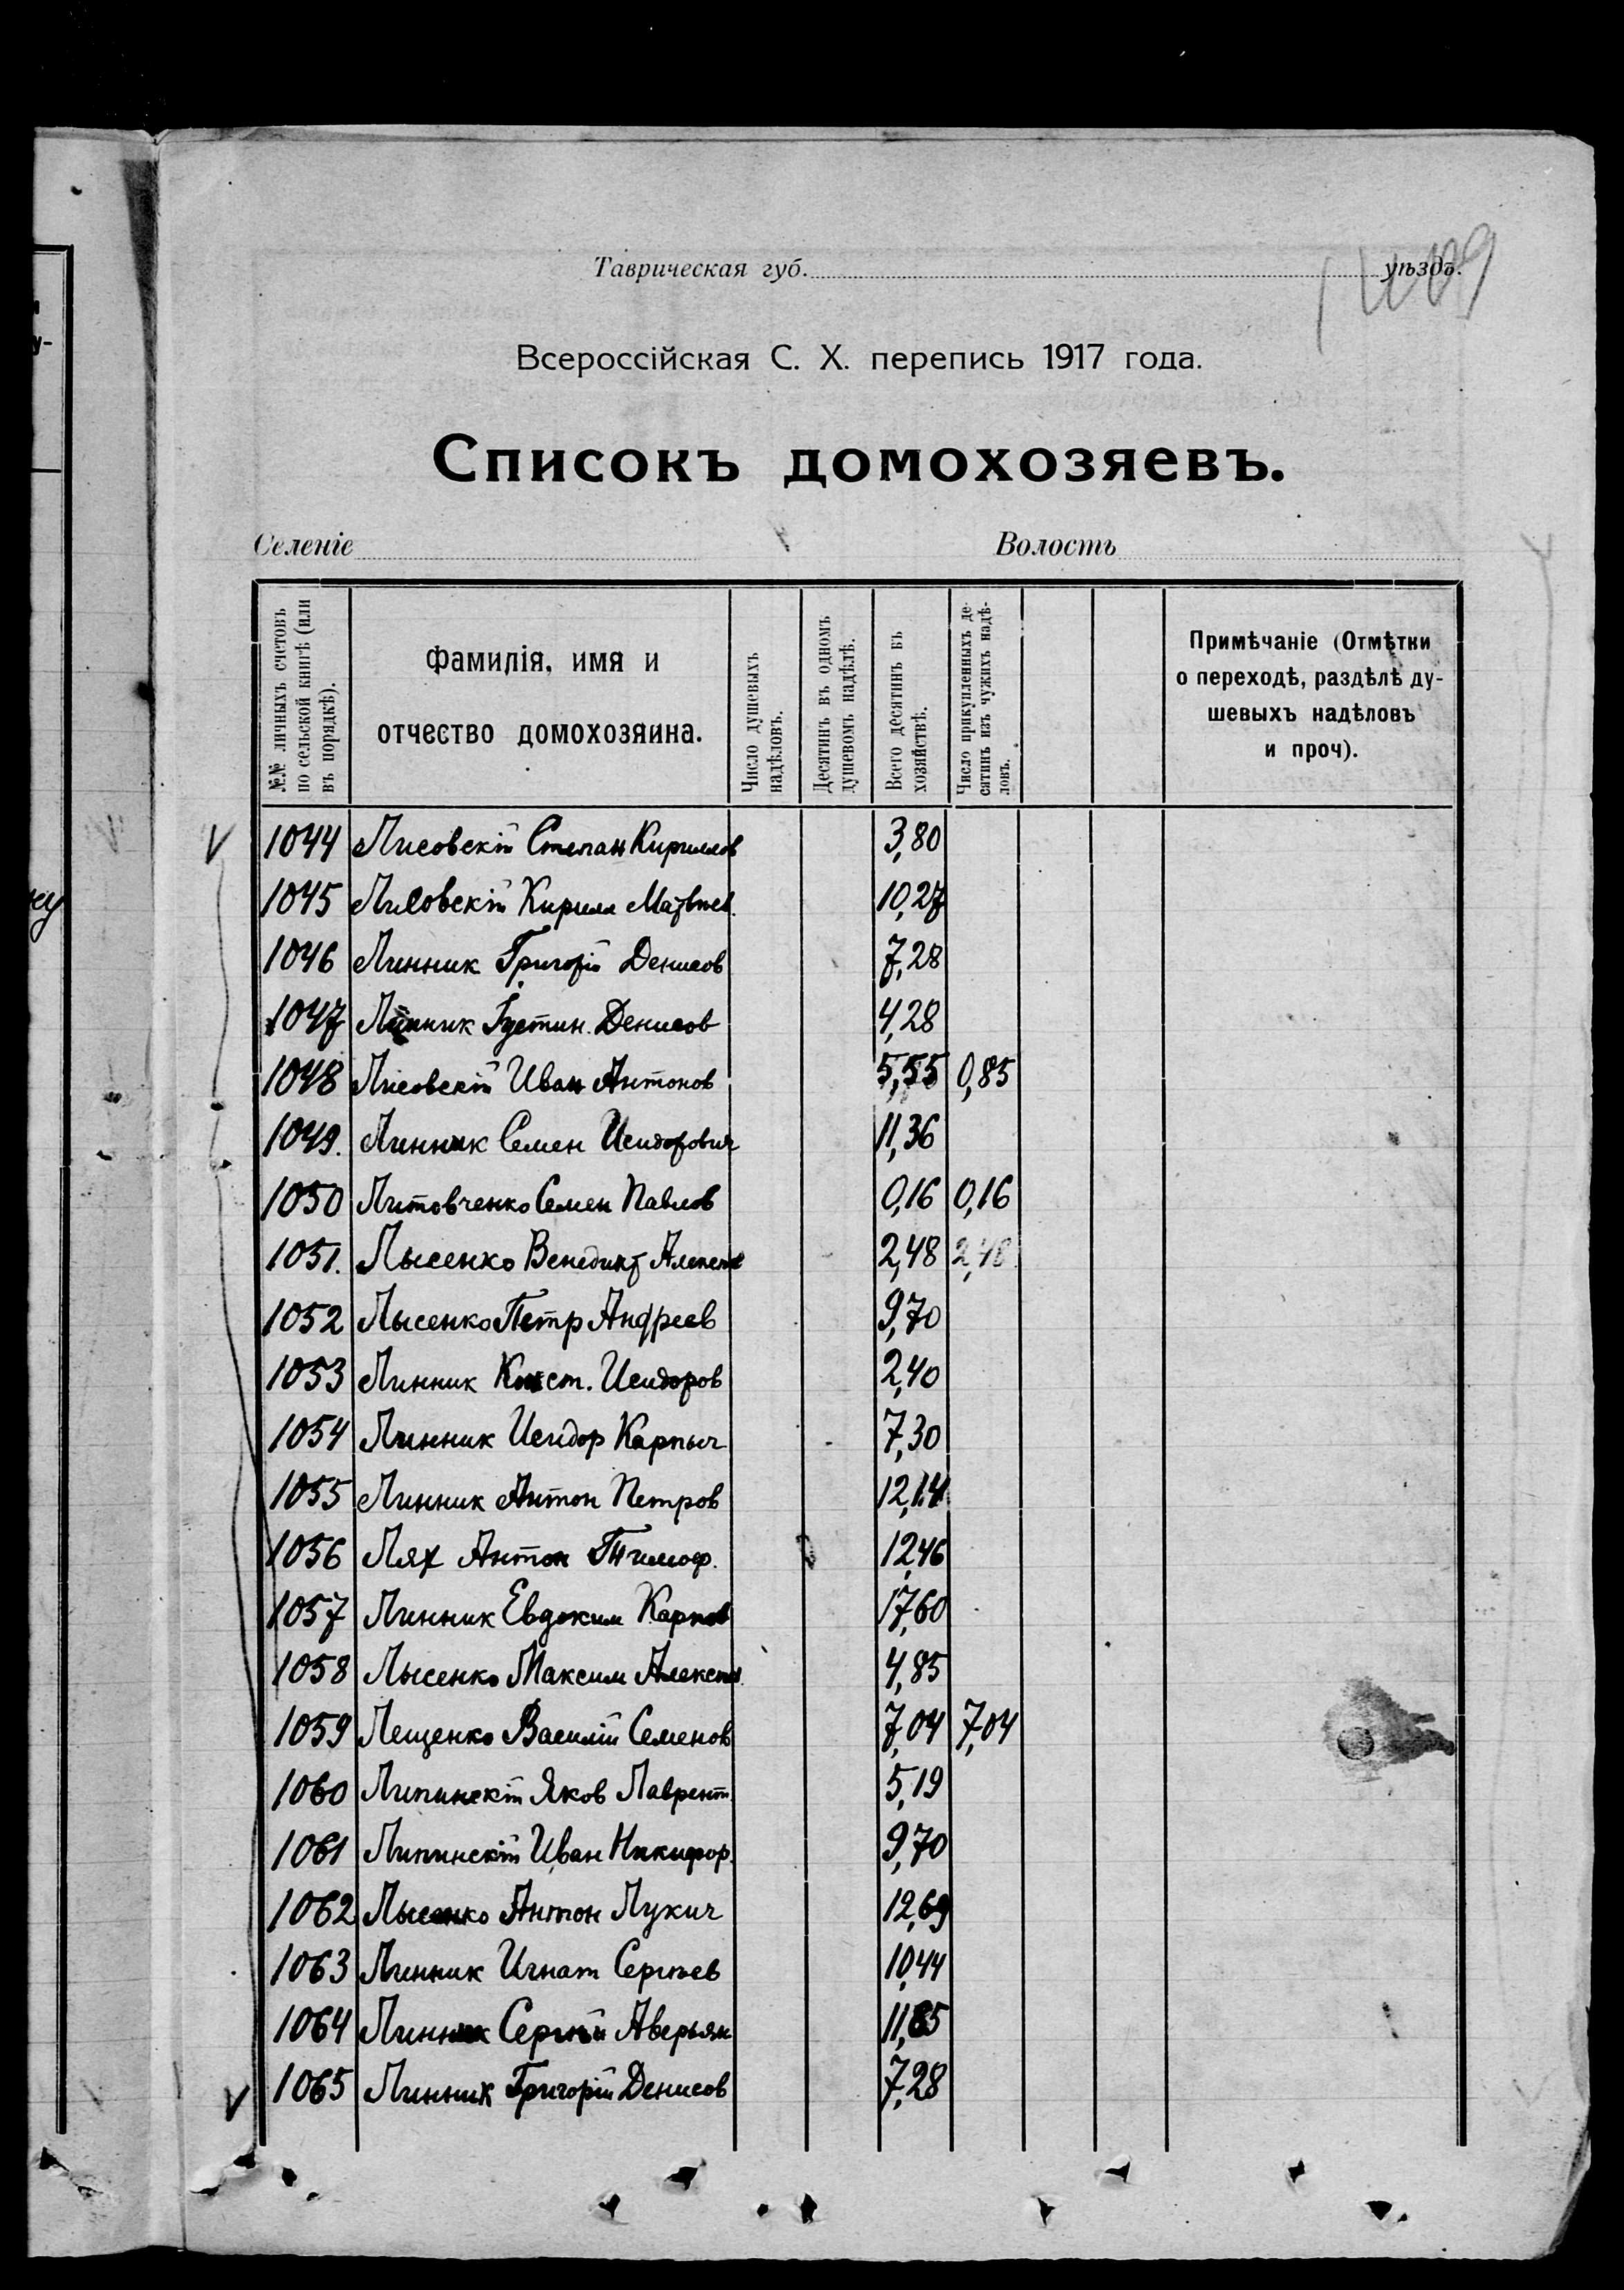 Таврическая губ. уѣздъ.
Всероссійская С. Х. перепись 1917 года.
Списокъ домохозяевъ.
Селеніе Волость
№№ личныхъ счетовъ по сельской книгѣ (или въ порядкѣ).
Фамилія, имя и отчество домохозяина.
Число душевыхъ надѣловъ.
Десятинъ въ одномъ душевомъ надѣлѣ.
Всего десятинъ въ хозяйствѣ.
Число прикупленныхъ десятинъ изъ чужихъ надѣловъ.
Примѣчаніе (Отмѣтки
о переходѣ, раздѣлѣ ду-
шевыхъ надѣловъ
и проч).
1044 Лисовскій Степан Кириллов 3,80
1045 Лисовскій Кирилл Матвѣев. 10,27
1046 Линник Григорій Денисов 7,28
1047 Линник Густин. Денисов 4,28
1048 Лисовскій Иван Антонов 5,55 0,85
1049. Линник Семен Исидорович 11,36
1050 Литовченко Семен Павлов 0,16 0,16
1051. Лысенко Венедикт Алексеев 2,48 2,48
1052 Лысенко Петр Андреев 9,70
1053 Линник Конст. Исидоров 2,40
1054 Линник Исидор Карпыч 7,30
1055 Линник Антон Петров 12,14
1056 Лях Антон Тимоф. 12,46
1057 Линник Евдоким Карпов 17,60
1058 Лысенко Максим 4,85
1059 Лещенко Василій Семенов 7,04 7,04
1060 Липинскій Яков Лаврент. 5,19
1061 Липинскій Иван Никифор. 9,70
1062 Лысенко Антон Лукич 12,69
1063 Линник Игнат Сергѣев 10,44
1064 Линник Сергѣй Аверьян 11,85
1065 Линник Григорій Денисов 7,28